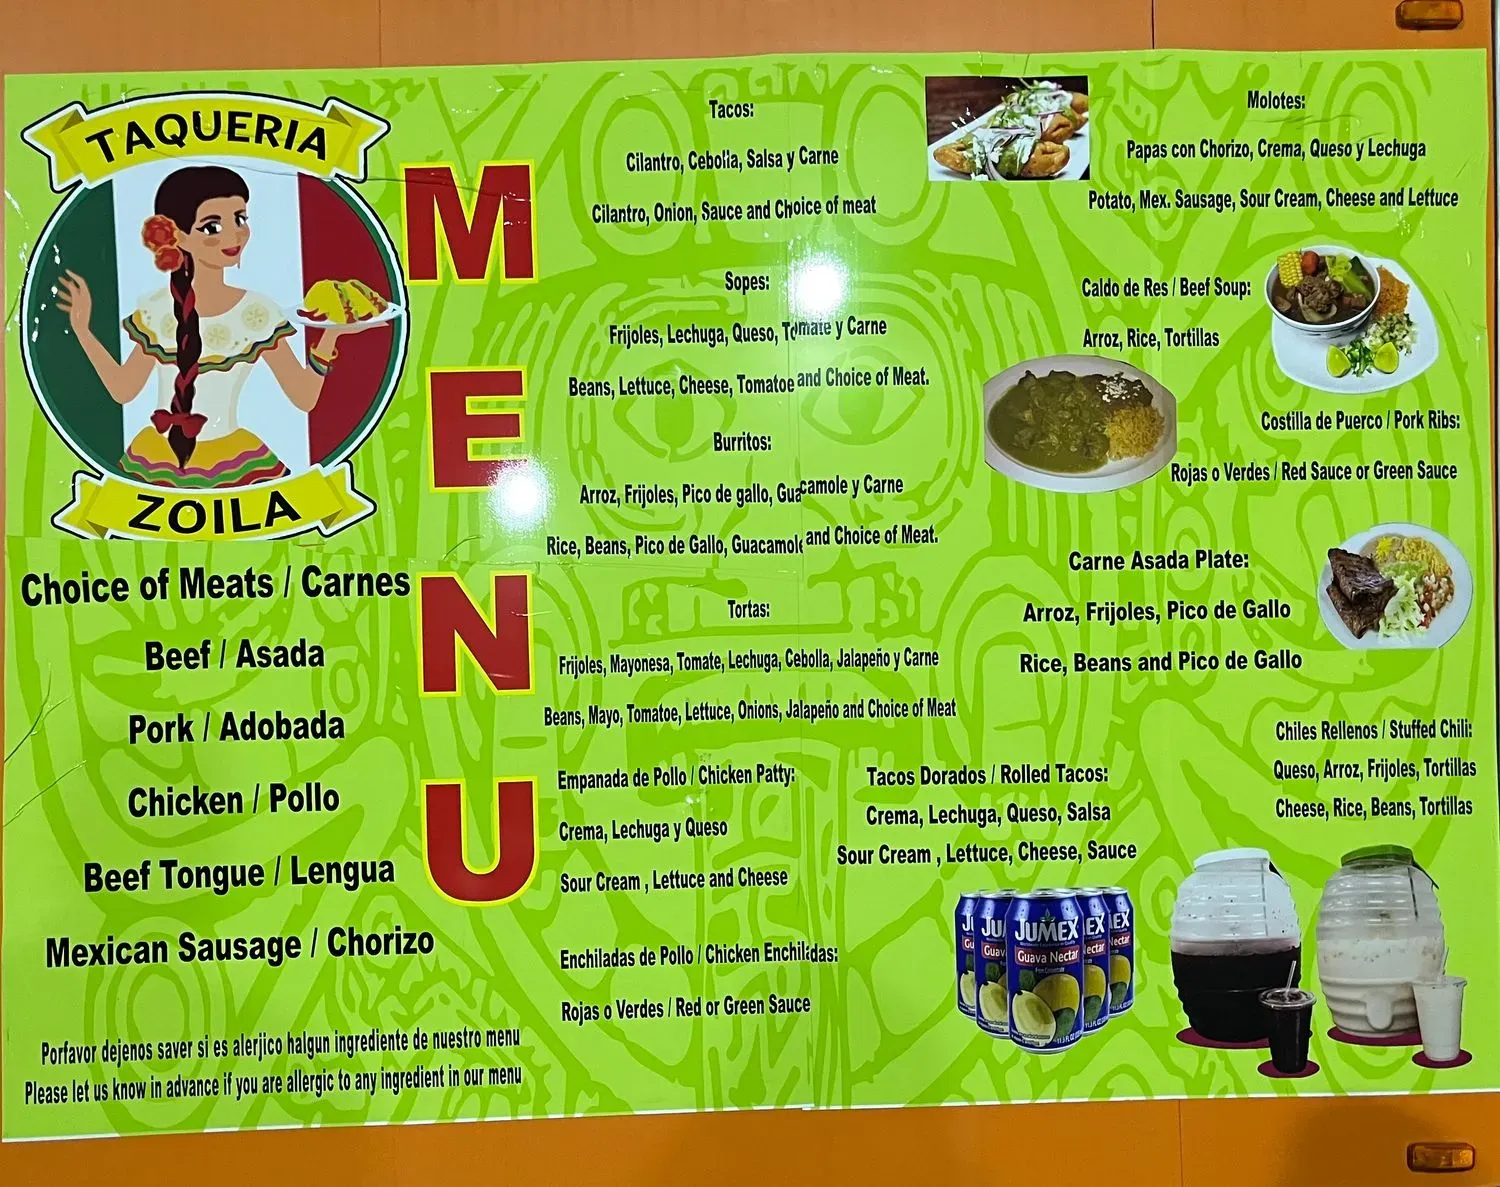 TAQUERIA
ZOILA
MENU
Choice of Meats / Carnes
Beef / Asada
Pork / Adobada
Chicken / Pollo
Beef Tongue / Lengua
Mexican Sausage / Chorizo
Porfavor dejenos saver si es alerjico halgun ingrediente de nuestro menu
Please let us know in advance if you are allergic to any ingredient in our menu
Tacos:
Cilantro, Cebolla, Salsa y Carne
Cilantro, Onion, Sauce and Choice of meat
Sopes:
Frijoles, Lechuga, Queso, Tomate y Carne
Beans, Lettuce, Cheese, Tomatoe and Choice of Meat.
Burritos:
Arroz, Frijoles, Pico de gallo, Guacamole y Carne
Rice, Beans, Pico de Gallo, Guacamole and Choice of Meat.
Tortas:
Frijoles, Mayonesa, Tomate, Lechuga, Cebolla, Jalapeño y Carne
Beans, Mayo, Tomatoe, Lettuce, Onions, Jalapeño and Choice of Meat
Empanada de Pollo / Chicken Patty:
Crema, Lechuga y Queso
Sour Cream , Lettuce and Cheese
Enchiladas de Pollo / Chicken Enchiladas:
Rojas o Verdes / Red or Green Sauce
Molotes:
Papas con Chorizo, Crema, Queso y Lechuga
Potato, Mex. Sausage, Sour Cream, Cheese and Lettuce
Caldo de Res / Beef Soup:
Arroz, Rice, Tortillas
Costilla de Puerco / Pork Ribs:
Rojas o Verdes / Red Sauce or Green Sauce
Carne Asada Plate:
Arroz, Frijoles, Pico de Gallo
Rice, Beans and Pico de Gallo
Chiles Rellenos / Stuffed Chili:
Queso, Arroz, Frijoles, Tortillas
Cheese, Rice, Beans, Tortillas
Tacos Dorados / Rolled Tacos:
Crema, Lechuga, Queso, Salsa
Sour Cream , Lettuce, Cheese, Sauce
JUMEX
Guava Nectar
From Concentrate